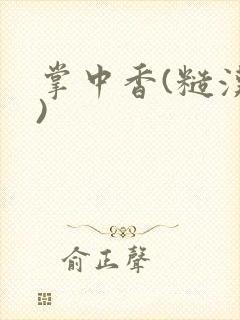 掌中香(糙漢
)
俞正聲